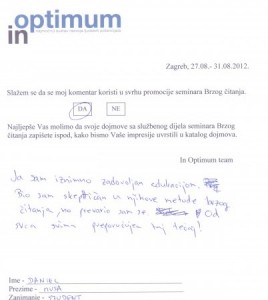 in optimum
Zagreb, 27.08.- 31.08.2012.
Slažem se da se moj komentar koristi u svrhu promocije seminara Brzog čitanja.
DA NE
Najljepše Vas molimo da svoje dojmove sa službenog dijela seminara Brzog
čitanja zapišete ispod, kako bismo Vaše impresije uvrstili u katalog dojmova.
In Optimum team
Ja sam iznimno zadovoljan edukacijom,
Bio sam skeptičan u njihove metode brzog
čitanja, no prevario sam se Od
svega srca preporučujem taj tečaj!
Ime - DANIEL
Prezime - MUSA
Zanimanje - STUDENT